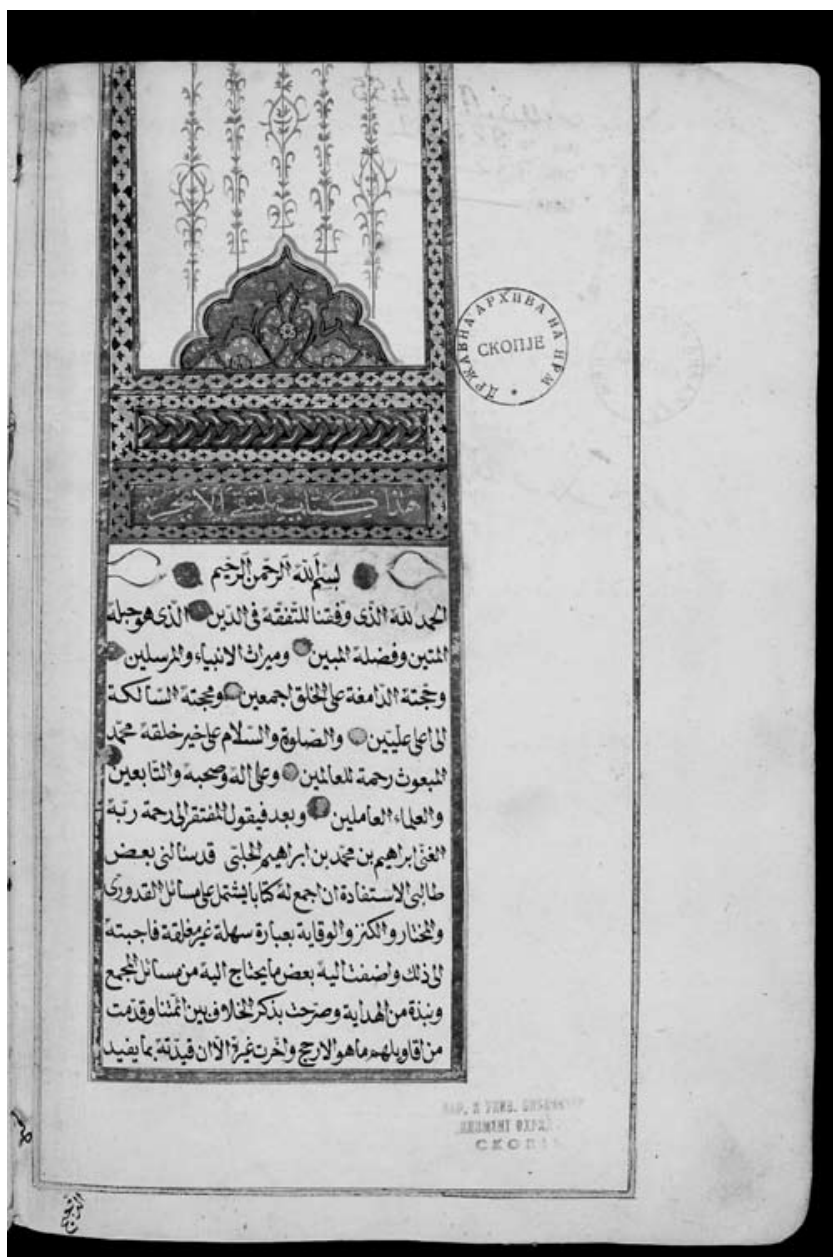 ДРЖАВНА АРХИВА НА НРМ
СКОПЈЕ
هذا كتاب ملتقى الابحر
بسم الله الرحمن الرحيم
الحمد لله الذى وفقنا للتفقه فى الدين الذى هو حبله
المتين وفضله المبين وميراث الانبياء والمرسلين
وحجته الدامغة على الخلق اجمعين ومحجته السالكة
الى اعلى عليين والصلوة والسلام على خير خلقه محمد
المبعوث رحمة للعالمين وعلى اله وصحبه والتابعين
والعلماء العاملين وبعد فيقول المفتقر الى رحمة ربه
الغنى ابراهيم بن محمد بن ابراهيم الحلبى قد سألنى بعض
طالبى الاستفادة ان اجمع له كتابا يشتمل على مسائل القدورى
والمختار والكنز والوقاية بعبارة سهلة غير مغلقة فاجبته
الى ذلك واضفت اليه بعض ما يحتاج اليه من مسائل المجمع
ونبذة من الهداية وصرحت بذكر الخلاف بين ائمتنا وقدمت
من اقاويلهم ما هو الارجح واخرت غيره الا ان قيدته بما يفيد
СКОПЈЕ